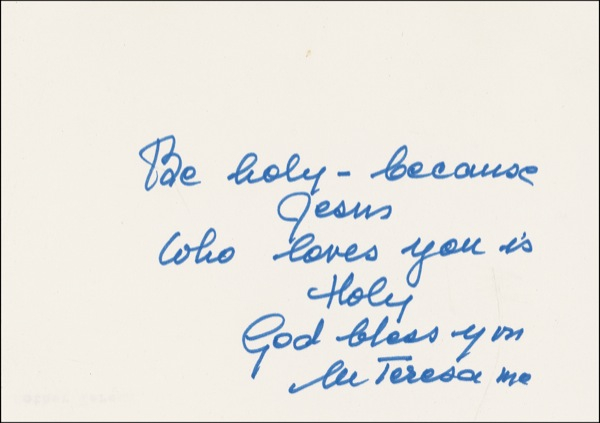 Be holy - because
Jesus
who loves you is
Holy
God bless you
lu Teresa mc